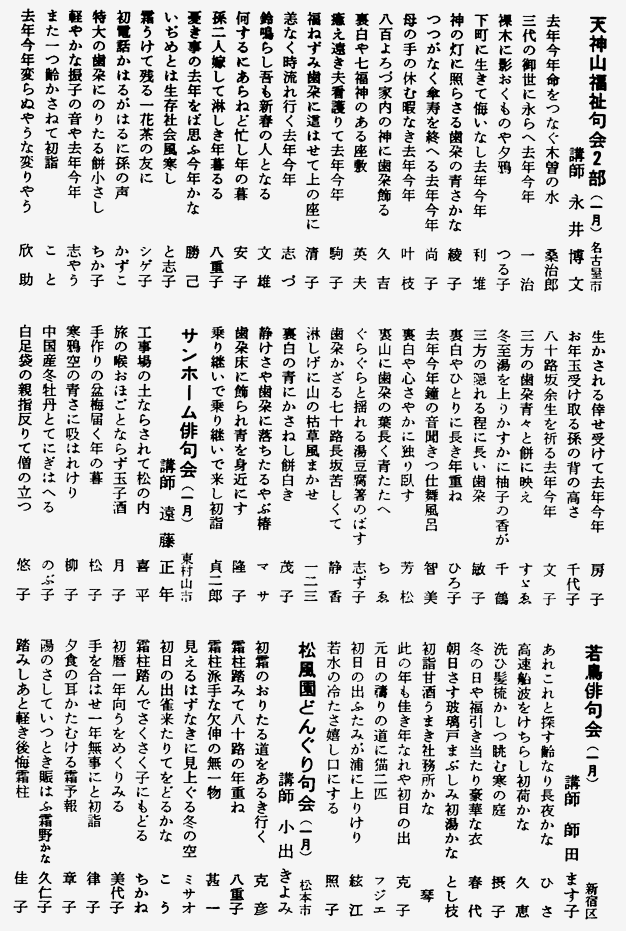 天神山福祉句会2部（一月）名古屋市
講師 永井 博文
去年今年命をつなぐ木曽の水 桑治郎
三代の御世に永らへ去年今年 一治
裸木に影おくものや夕鴉 つる子
下町に生きて悔いなし去年今年 利堆
神の灯に照らさる歯朶の青さかな 綾子
つつがなく傘寿を終へる去年今年 尚子
母の手の休む暇なき去年今年 叶枝
八百よろづ家内の神に歯朶飾る 久吉
裏白や七福神のある座敷 英夫
癒え遠き夫看護りて去年今年 駒子
福ねずみ歯朶に這はせて上の座に 清子
恙なく時流れ行く去年今年 志づ
鈴鳴らし吾も新春の人となる 文雄
何するにあらねど忙し年の暮 安子
孫二人嫁して淋しき年暮るる 八重子
憂き事の去年をば思ふ今年かな 勝己
いぢめとは生存社会風寒し と志子
霜うけて残る一花茶の友に シゲ子
初電話かはるがはるに孫の声 かずこ
特大の歯朶にのりたる餅小さし ちか子
軽やかな振子の音や去年今年 志やう
また一つ齢かさねて初詣 こと
去年今年変らぬやうな変りやう 欣助
生かされる倖せ受けて去年今年 房子
お年玉受け取る孫の背の高さ 千代子
八十路坂余生を祈る去年今年 文子
三方の歯朶青々と餅に映え すゞゑ
冬至湯を上りかすかに柚子の香が 千鶴
三方の隠れる程に長い歯朶 敏子
裏白やひとりに長き年重ね ひろ子
去年今年鐘の音聞きつ仕舞風呂 智美
裏白や心さやかに独り臥す 芳松
裏山に歯朶の葉長く青たたへ ちゑ
ぐらぐらと揺れる湯豆腐箸のばす 志ず子
歯朶かざる七十路長坂苦しくて 静香
淋しげに山の枯草風まかせ 一二三
裏白の青にかさねし餅白き 茂子
静けさや歯朶に落ちたるやぶ椿 マサ
歯朶床に飾られ青を身近にす 隆子
乗り継いで乗り継いで来し初詣 貞二郎
サンホーム俳句会（一月）東村山市
講師 遠藤 正年
工事場の土ならされて松の内 喜平
旅の喉おほごとならず玉子酒 月子
手作りの盆梅届く年の暮 松子
寒鴉空の青さに吸はれけり 柳子
中国産冬牡丹とてにぎはへる のぶ子
白足袋の親指反りて僧の立つ 悠子
若鳥俳句会（一月）新宿区
講師 師田 ます子
あれこれと探す齢なり長夜かな ひさ
高速船波をけちらし初荷かな 久恵
洗ひ髪梳かしつ眺む寒の庭 摂子
冬の日や福引き当たり豪華な衣 春代
朝日さす玻璃戸まぶしみ初湯かな とし枝
初詣甘酒うまき社務所かな 琴
此の年も佳き年なれや初日の出 克子
元日の禱りの道に猫二匹 フジエ
初日の出ふたみが浦に上りけり 絃江
若水の冷たさ嬉し口にする 照子
松風園どんぐり句会（一月）松本市
講師 小出 きよみ
初霜のおりたる道をあるき行く 克彦
霜柱踏みて八十路の年重ね 八重子
霜柱派手な欠伸の無一物 甚一
見えるはずなきに見上ぐる冬の空 ミサオ
初日の出雀来たりてをどるかな こう
霜柱踏んでさくさく子にもどる ちかね
初暦一年向うをめくりみる 美代子
手を合はせ一年無事にと初詣 律子
夕食の耳かたむける霜予報 章子
陽のさしていつとき賑はふ霜野かな 久仁子
踏みしあと軽き後悔霜柱 佳子